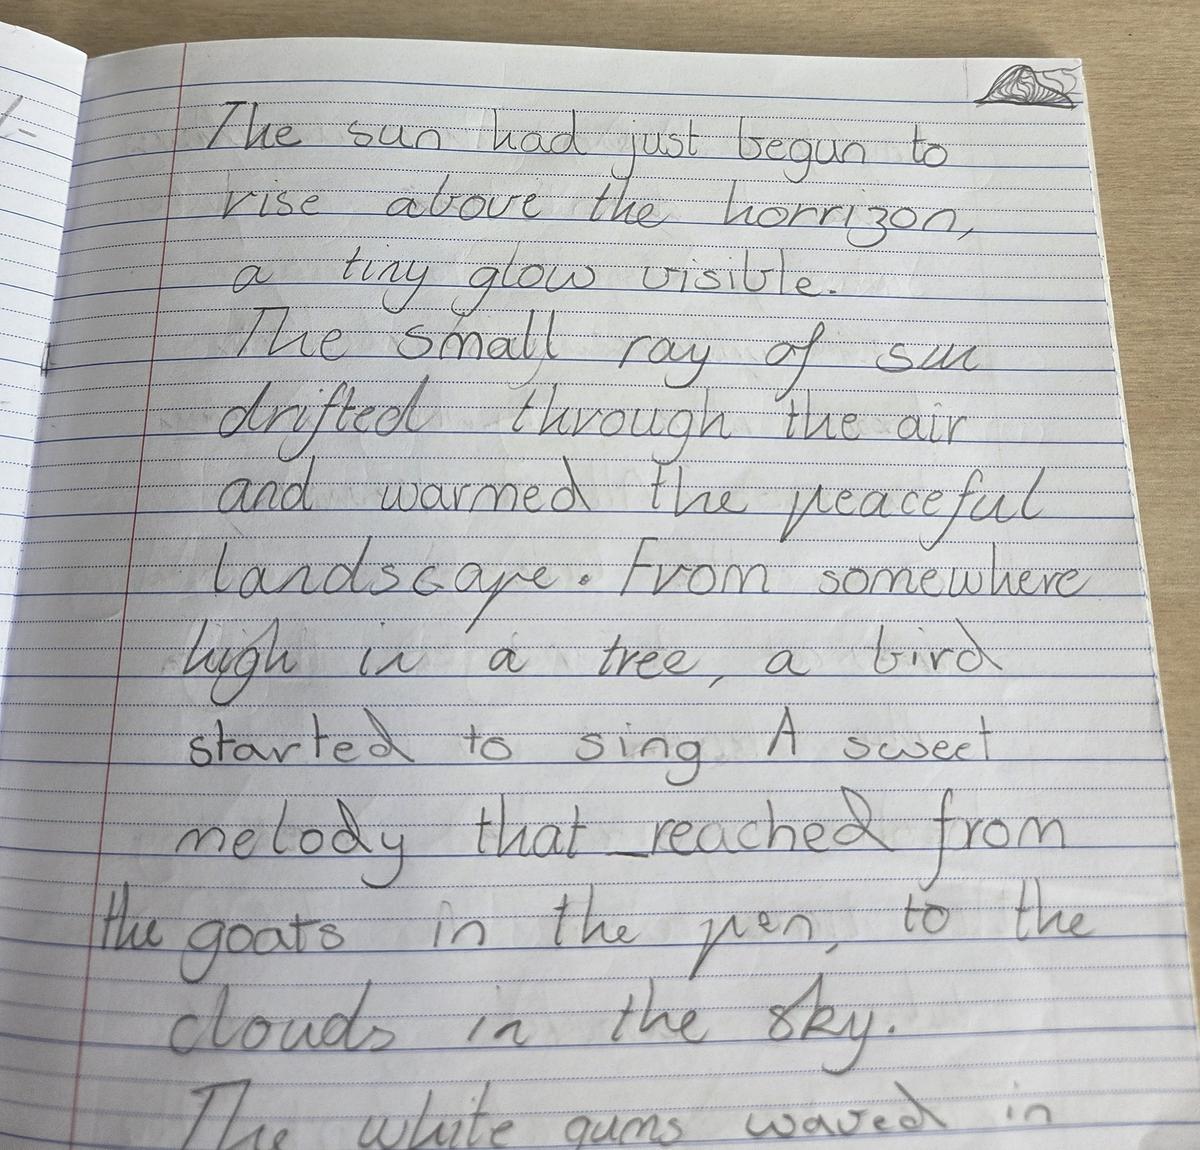 The sun had just begun to
rise above the horrizon,
a tiny glow visible.
The small ray of sun
drifted through the air
and warmed the peaceful
landscape. From somewhere
high in a tree, a bird
started to sing A sweet
melody that reached from
the goats in the pen, to the
clouds in the sky.
The white gums waved in